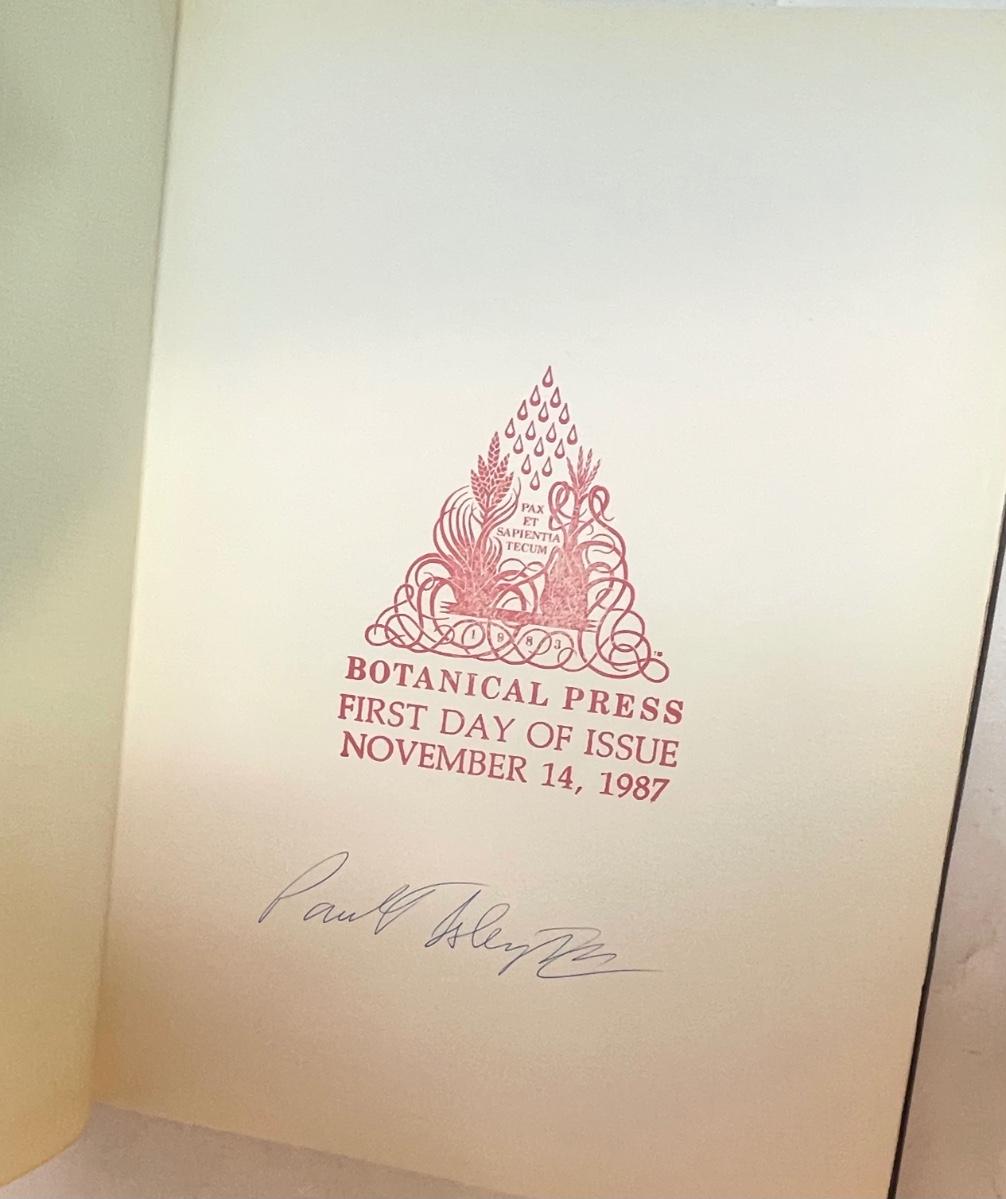 PAX
ET
SAPIENTIA
TECUM
1983
™
BOTANICAL PRESS
FIRST DAY OF ISSUE
NOVEMBER 14, 1987
Paul T Isley III